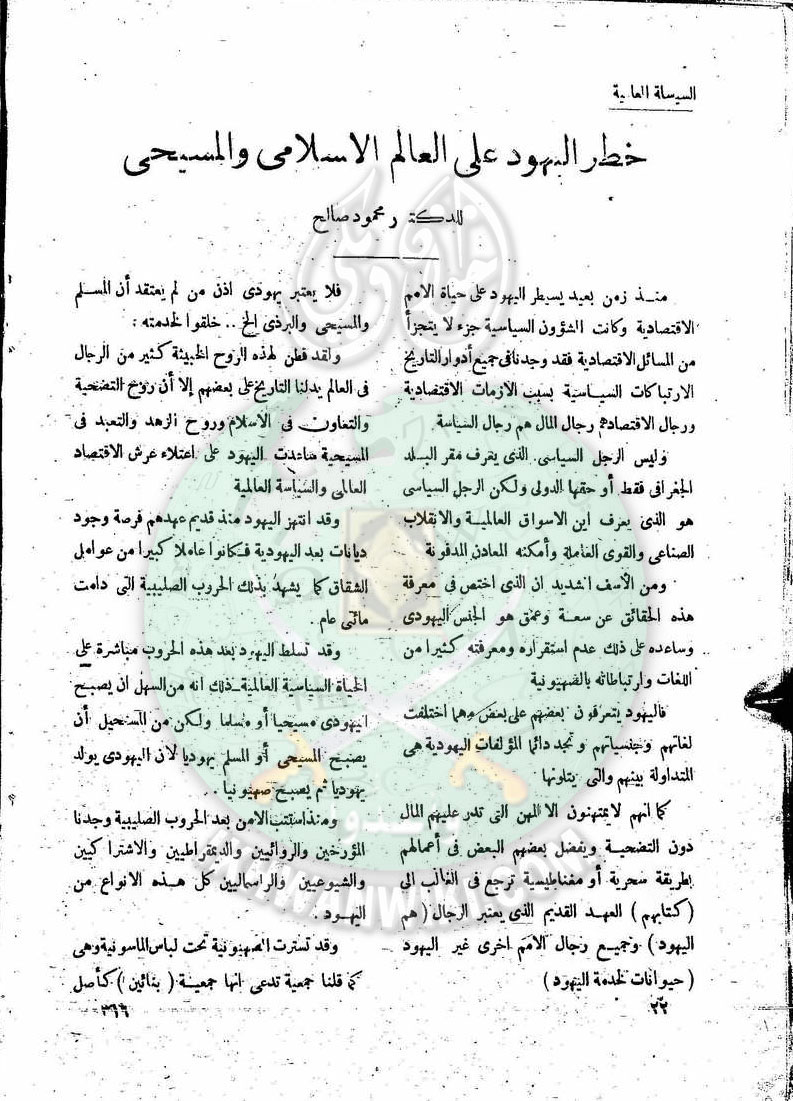 السياسة العالمية
خطر اليهود على العالم الاسلامى والمسيحى
للدكتور محمود صالح
منذ زمن بعيد يسيطر اليهود على حياة الامم
الاقتصادية وكانت الشؤون السياسية جزء لا يتجزأ
من المسائل الاقتصادية فقد وجدنا فى جميع أدوار التاريخ
الارتباكات السياسية بسبب الازمات الاقتصادية
ورجال الاقتصاد هم رجال المال هم رجال السياسة
وليس الرجل السياسى الذى يعرف مقر البلد
الجغرافى فقط أو حقها الدولى ولكن الرجل السياسى
هو الذى يعرف اين الاسواق العالمية والانقلاب
الصناعى والقوى العاملة وأمكنه المعادن المدفونة
ومن الأسف الشديد ان الذى اختص فى معرفة
هذه الحقائق عن سعة وعمق هو الجنس اليهودى
وساعده على ذلك عدم استقراره ومعرفته كثيرا من
اللغات وارتباطاته بالصهيونية
فاليهود يتعرفون بعضهم على بعض مهما اختلفت
لغاتهم وجنسياتهم وتجد دائما المؤلفات اليهودية هى
المتداولة بينهم والتى يتلونها
كما انهم لا يمتهنون الا المهن التى تدر عليهم المال
دون التضحية ويفضل بعضهم البعض فى أعمالهم
بطريقة سحرية أو مغناطيسية ترجع فى الغالب الى
(كتابهم) العهد القديم الذى يعتبر الرجال (هم
اليهود) وجميع رجال الامم اخرى غير اليهود
(حيوانات لخدمة اليهود)
٢٢
فلا يعتبر يهودى اذن من لم يعتقد أن المسلم
والمسيحى والبرذى الخ .. خلقوا لخدمته :
ولقد فطن لهذه الروح الخبيثة كثير من الرجال
فى العالم يدلنا التاريخ على بعضهم إلا أن روح التضحية
والتعاون فى الاسلام وروح الزهد والتعبد فى
المسيحية ساعدت اليهود على اعتلاء عرش الاقتصاد
العالمى والسياسة العالمية
وقد انتهز اليهود منذ قديم عهدهم فرصة وجود
ديانات بعد اليهودية فكانوا عاملا كبيرا من عوامل
الشقاق كما يشهد بذلك الحروب الصليبية التى دامت
مائتى عام .
وقد تسلط اليهود بعد هذه الحروب مباشرة على
الحياة السياسية العالمية ـ ذلك انه من السهل ان يصبح
اليهودى مسيحيا أو مسلما ولكن من المستحيل أن
يصبح المسيحى أو المسلم يهوديا لان اليهودى يولد
يهوديا ثم يصبح صهيونيا .
ومنذ استتب الامن بعد الحروب الصليبية وجدنا
المؤرخين والروائيين والديمقراطيين والاشتراكيين
والشيوعيين والراسماليين كل هذه الانواع من
اليهود .
وقد تسترت الصهيونية تحت لباس الماسونية وهى
كما قلنا جمعية تدعى انها جمعية (بنائين) كأصل
٣٦٦
IKHWANWIKI.COM